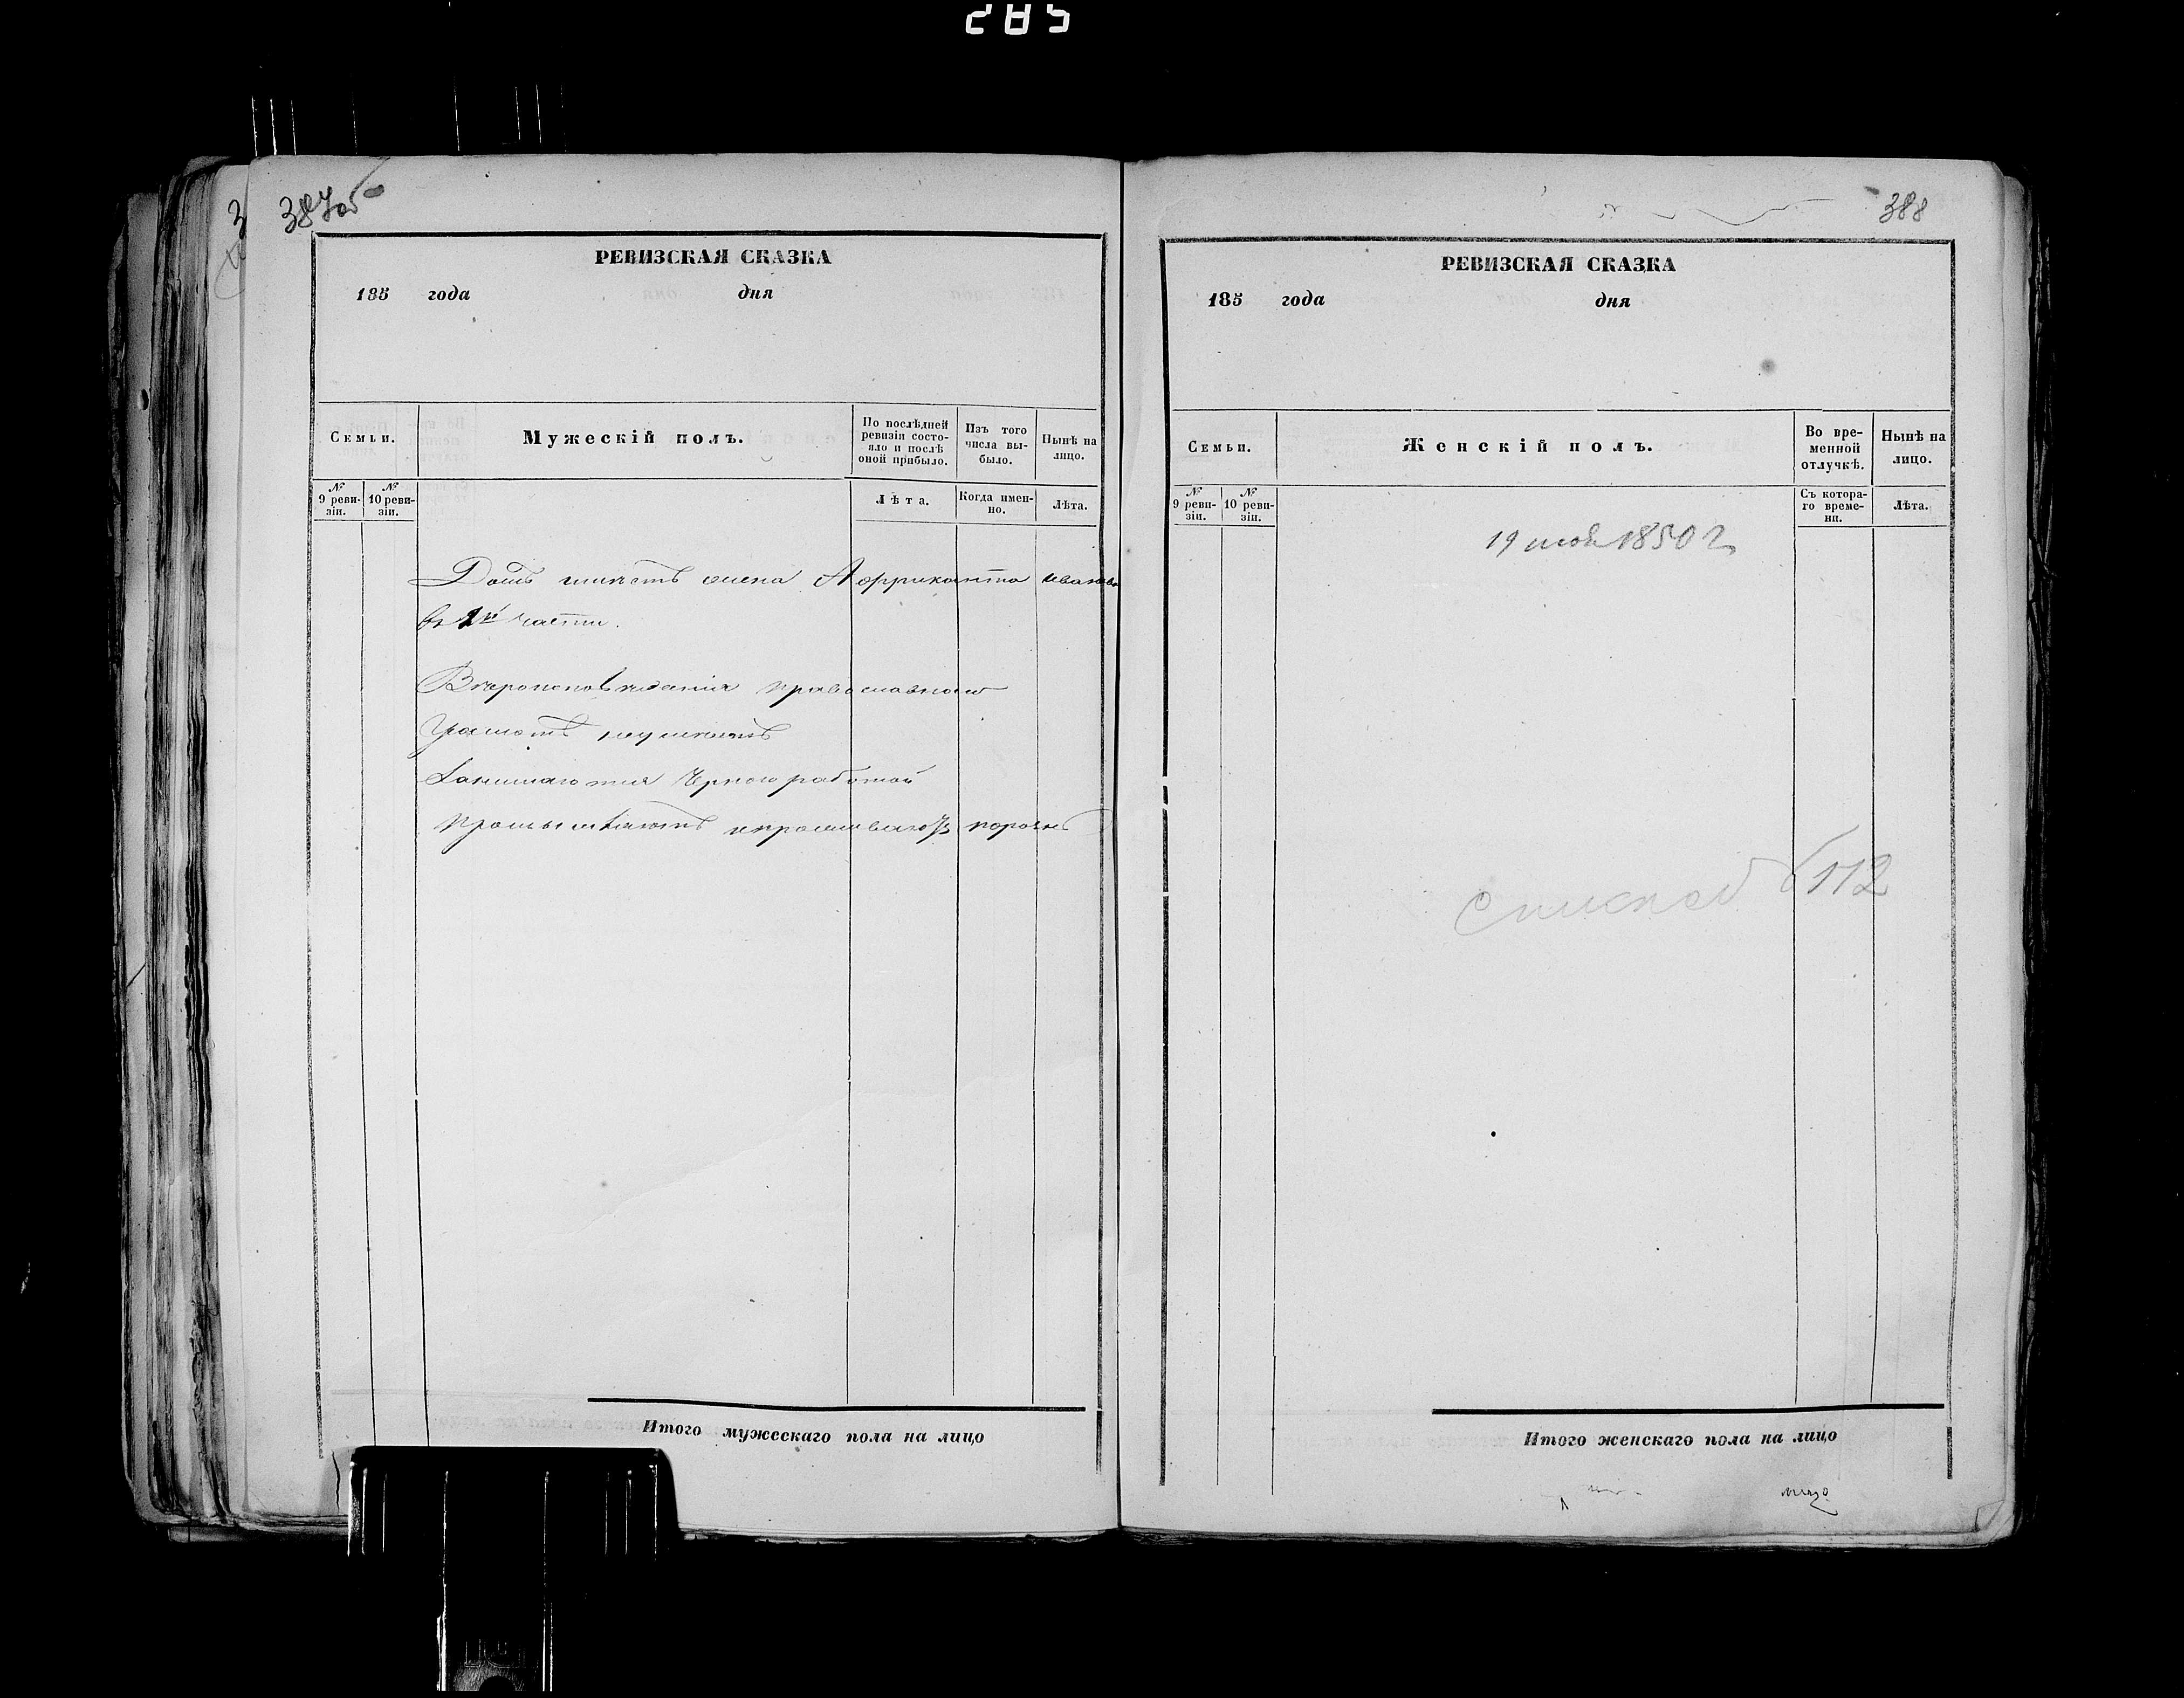 285
387об
РЕВИЗСКАЯ СКАЗКА
185 года дня
Семьи.
Мужескій полъ.
По послѣдней ревизіи состояло и послѣ оной прибыло.
Изъ того числа выбыло.
Нынѣ на лицо.
№ 9 ревизіи.
№ 10 ревизіи.
Лѣта.
Когда именно.
Лѣта.
Домъ имѣетъ жена Аффриканта Иванова
въ 2й части.
Вѣроисповѣданія православнаго
Грамотѣ неумѣетъ
Занимается черною работой
Итого мужескаго пола на лицо
388
РЕВИЗСКАЯ СКАЗКА
185 года дня
Семьи.
Женскій полъ.
Во временной отлучкѣ.
Нынѣ на лицо.
№ 9 ревизіи.
№ 10 ревизіи.
Съ котораго времени.
Лѣта.
1850 г
112
Итого женскаго пола на лицо